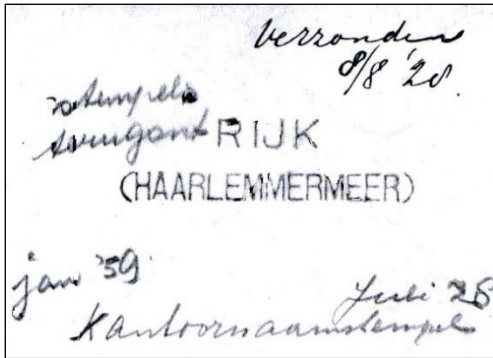 verzonden
8/8 '28.
stempels
terugont
RIJK
(HAARLEMMERMEER)
jan '39.
Juli 28
Kantoornaamstempel